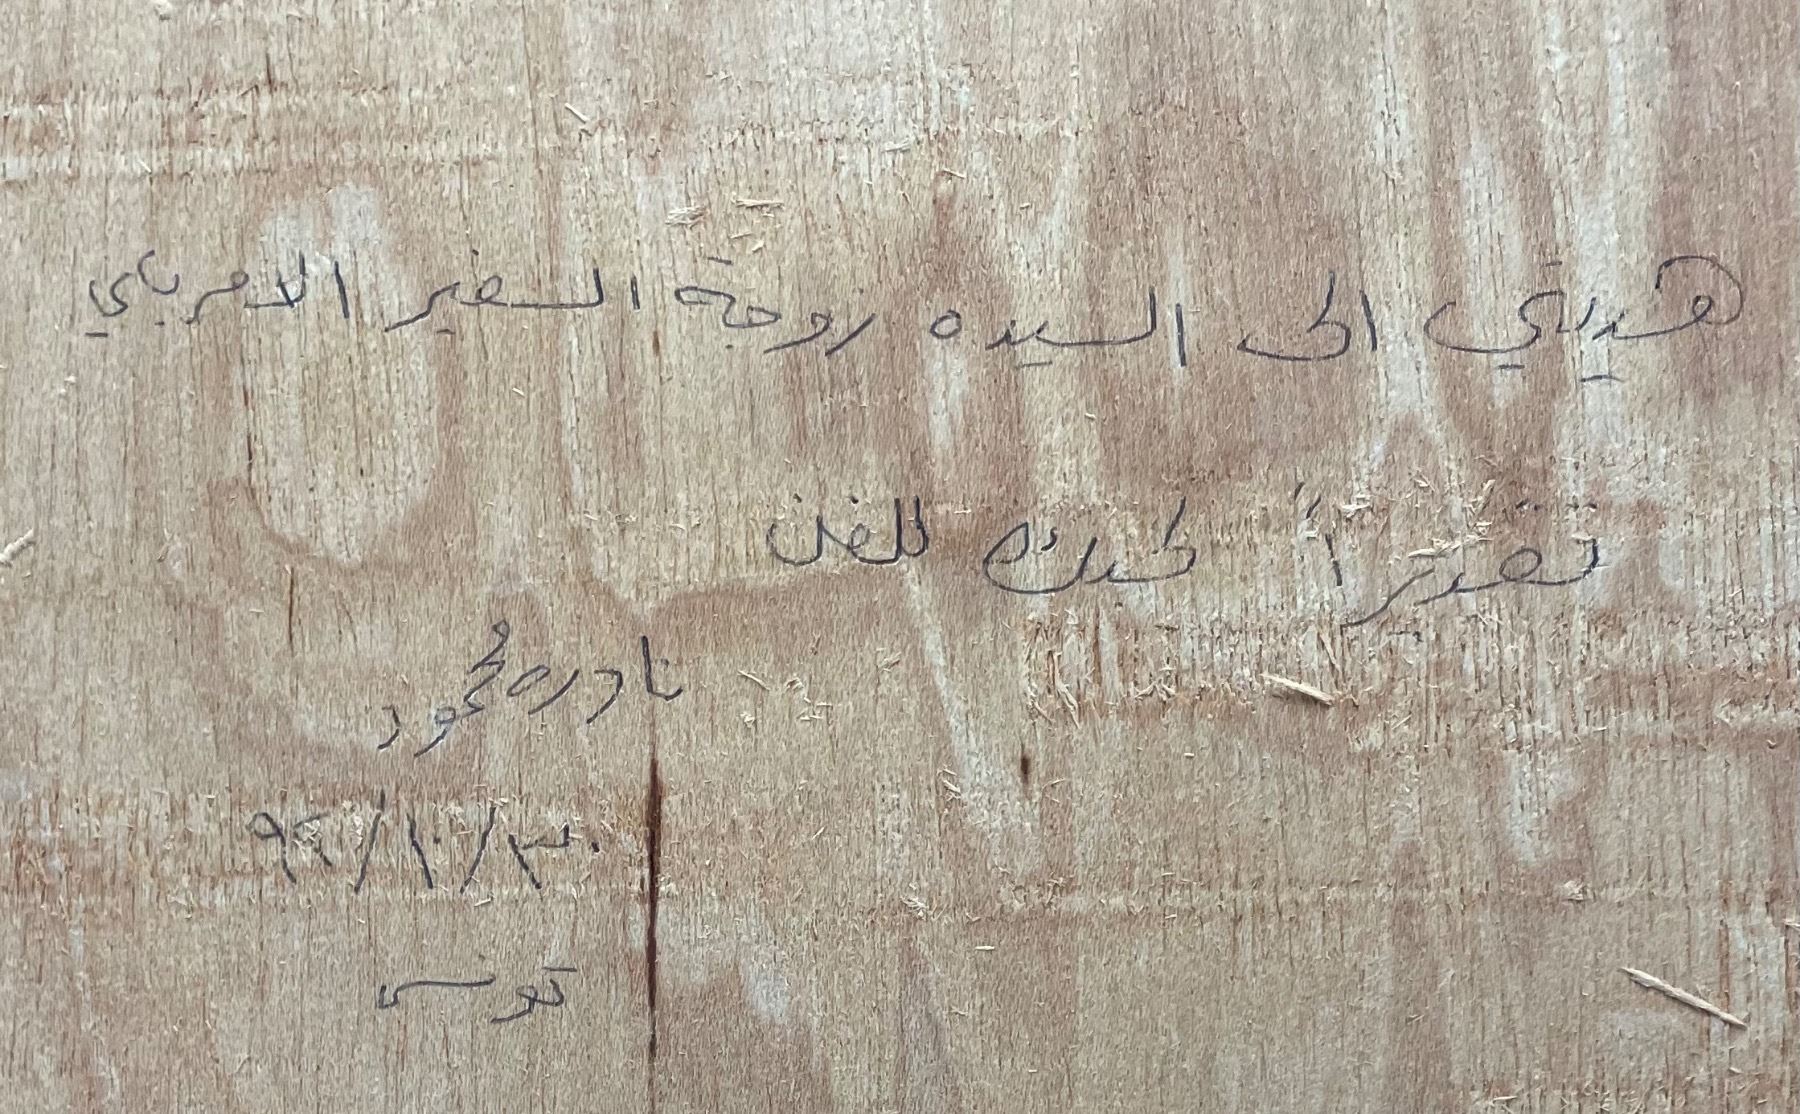 هديتي الى السيده زوجة السفير الامريكي
تقديراً لحبك للفن
نادره محمود
٩٢/١٠/٣٠
تونس